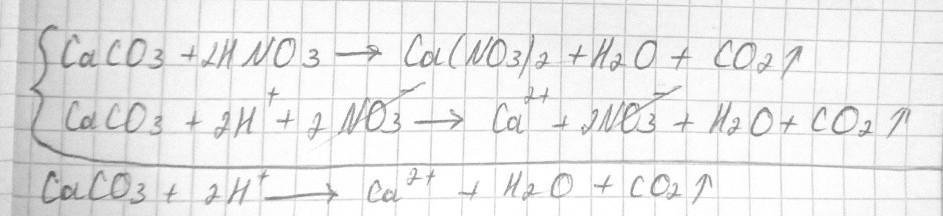 CaCO3 + 2HNO3 → Ca(NO3)2 + H2O + CO2↑
CaCO3 + 2H⁺ + 2NO3⁻ → Ca²⁺ + 2NO3⁻ + H2O + CO2↑
CaCO3 + 2H⁺ → Ca²⁺ + H2O + CO2↑